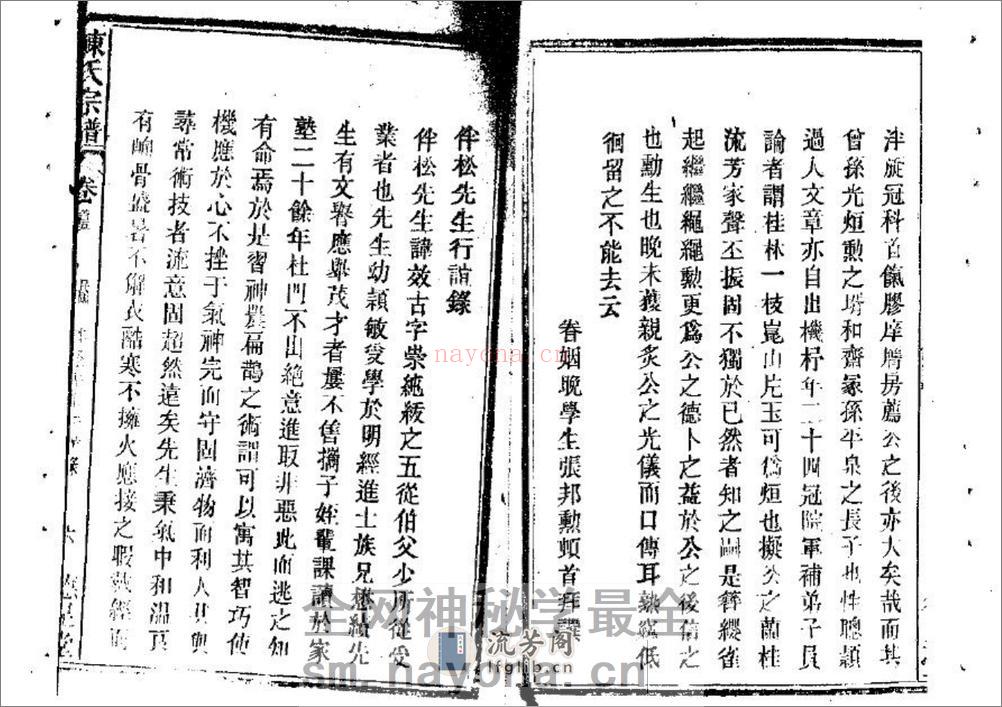 泮旋冠科首儼膠庠膺房薦公之後亦大矣哉而其
曾孫光烜勳之壻和齋冢孫半泉之長子也性聰穎
過人文章亦自出機杼年二十四冠院軍補弟子員
論者謂桂林一枝崑山片玉可為烜也擬公之蘭桂
流芳家聲丕振固不獨於已然者知之嗣是簪纓雀
起繼繼繩繩勳更爲公之德卜之益於公之後信之
也勳生也晚未獲親炙公之光儀而口傳耳熟竊低
徊留之不能去云
眷姻晚學生張邦勳頓首拜譔
伴松先生行誼錄
伴松先生諱效古字崇純綏之五從伯父少所從受
業者也先生幼穎敏受學於明經進士族兄懋績先
生有文譽應舉茂才者屢不售攜子姪輩課讀於家
塾二十餘年杜門不出絶意進取非惡此而逃之知
有命焉於是習神農扁鵲之術謂可以寓其智巧使
機應於心不挫于氣神完而守固濟物而利人其與
尋常術技者流意固超然遠矣先生秉氣中和溫眞
有 骨盛暑不解衣酷寒不擁火應接之暇執經而
陳氏宗譜
卷
六
全网神秘学最全
sm.nayona.cn
nayona.cn
流芳阁
lfglib.cn